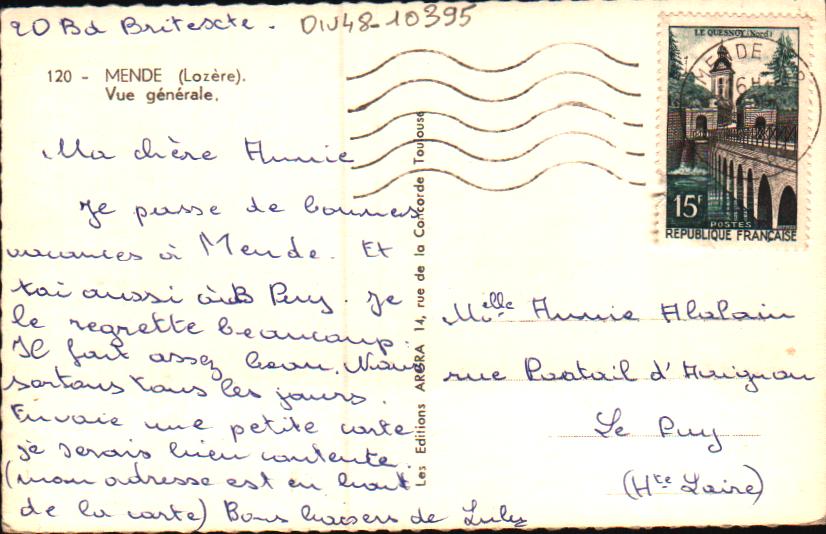 20 Bd Britexte.
DIV48-10395
120 - MENDE (Lozère).
Vue générale.
Ma chère Annie
Je passe de bonnes
vacances à Mende. Et
toi aussi Puy. Je
le regrette beaucoup.
Il fait assez beau. Nous
sortons tous les jours.
Envoie une petite carte
je serais bien contente.
(mon adresse est en haut
de la carte) Bons baisers de
Les Editions AR 14, rue de la Concorde Toulouse
LE QUESNOY (Nord)
MENDE
15F
POSTES
REPUBLIQUE FRANÇAISE
Melle Annie
rue Portail d'Avignon
Le Puy
(Hte Loire)